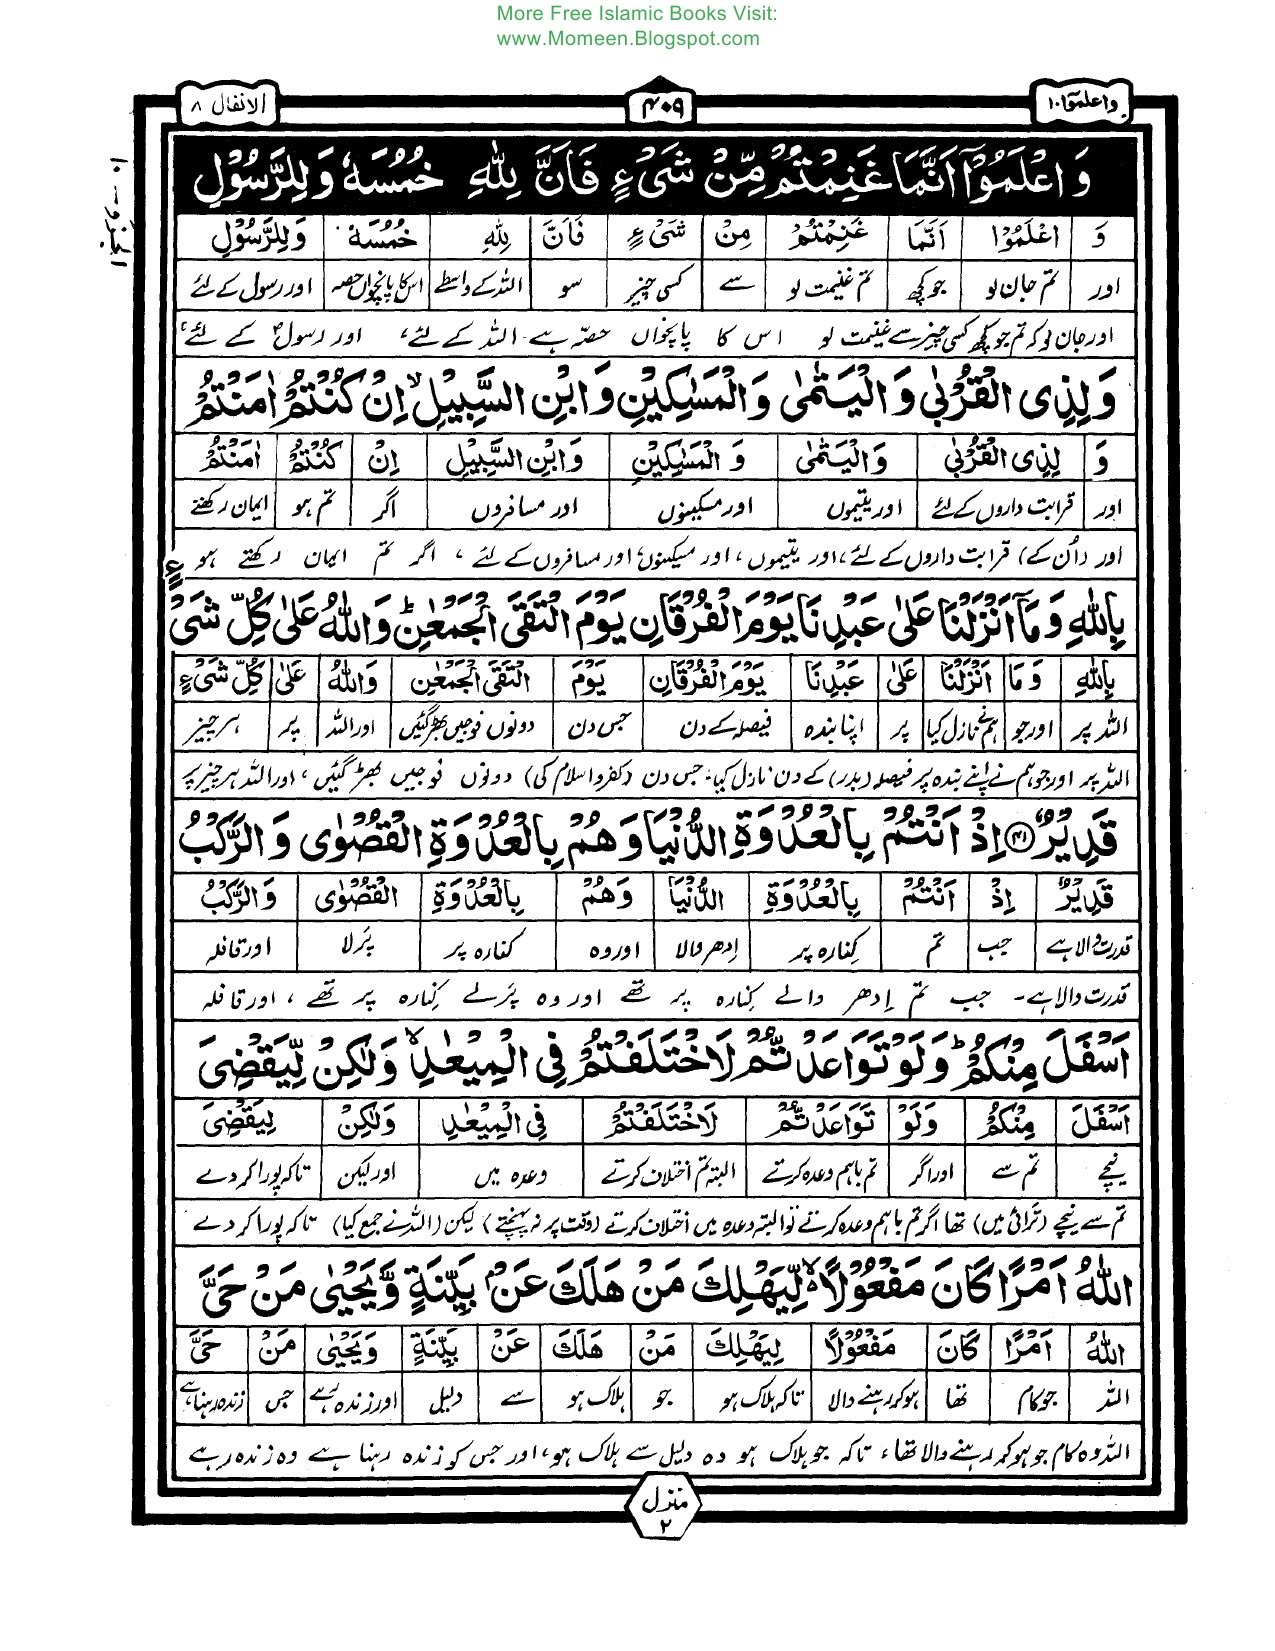 More Free Islamic Books Visit:
www.Momeen.Blogspot.com
واعلموا ١٠ ۴۰۹ الانفال ۸
الجزو ـ ١٠
وَ اعْلَمُوْۤا اَنَّمَا غَنِمْتُمْ مِّنْ شَیْءٍ فَاَنَّ لِلّٰهِ خُمُسَهٗ وَ لِلرَّسُوْلِ
وَ اعْلَمُوْٓا اَنَّمَا غَنِمْتُمْ مِنْ شَیْءٍ فَاَنَّ لِلّٰهِ خُمُسَهٗ وَلِلرَّسُوْلِ
اور تم جان لو جو کچھ تم غنیمت لو سے کسی چیز سو اللہ کے واسطے اس کا پانچواں حصہ اور رسول کے لئے
اور جان لو کہ تم جو کچھ کسی چیز سے غنیمت لو اس کا پانچواں حصہ ہے اللہ کے لئے، اور رسولؐ کے لئے،
وَ لِذِی الْقُرْبٰی وَ الْیَتٰمٰی وَ الْمَسٰكِیْنِ وَ ابْنِ السَّبِیْلِ ۙ اِنْ كُنْتُمْ اٰمَنْتُمْ
وَ لِذِی الْقُرْبٰی وَالْیَتٰمٰی وَ الْمَسٰكِیْنِ وَابْنِ السَّبِیْلِ اِنْ كُنْتُمْ اٰمَنْتُمْ
اور قرابت داروں کے لئے اور یتیموں اور مسکینوں اور مسافروں اگر تم ہو ایمان رکھتے
اور (ان کے) قرابت داروں کے لئے، اور یتیموں، اور مسکینوں، اور مسافروں کے لئے، اگر تم ایمان رکھتے ہو
بِاللّٰهِ وَ مَاۤ اَنْزَلْنَا عَلٰی عَبْدِنَا یَوْمَ الْفُرْقَانِ یَوْمَ الْتَقَی الْجَمْعٰنِ ؕ وَ اللّٰهُ عَلٰی كُلِّ شَیْءٍ
بِاللّٰهِ وَمَا اَنْزَلْنَا عَلٰی عَبْدِنَا یَوْمَ الْفُرْقَانِ یَوْمَ الْتَقَی الْجَمْعٰنِ وَاللّٰهُ عَلٰی كُلِّ شَیْءٍ
اللہ پر اور جو ہم نے نازل کیا پر اپنا بندہ فیصلہ کے دن جس دن دونوں فوجیں بھڑ گئیں اور اللہ پر ہر چیز
اللہ پر اور جو ہم نے اپنے بندہ پر فیصلہ (بدر) کے دن نازل کیا۔ جس دن (کفر و اسلام کی) دونوں فوجیں بھڑ گئیں، اور اللہ ہر چیز پر
قَدِیْرٌ ﴿۴۱﴾ اِذْ اَنْتُمْ بِالْعُدْوَةِ الدُّنْیَا وَ هُمْ بِالْعُدْوَةِ الْقُصْوٰی وَ الرَّكْبُ
قَدِیْرٌ اِذْ اَنْتُمْ بِالْعُدْوَةِ الدُّنْیَا وَهُمْ بِالْعُدْوَةِ الْقُصْوٰی وَالرَّكْبُ
قدرت والا ہے جب تم کنارہ پر اِدھر والا اور وہ کنارہ پر پَرلا اور قافلہ
قدرت والا ہے۔ جب تم اِدھر والے کنارہ پر تھے اور وہ پَرلے کنارہ پر تھے، اور قافلہ
اَسْفَلَ مِنْكُمْ ؕ وَ لَوْ تَوَاعَدْتُّمْ لَاخْتَلَفْتُمْ فِی الْمِیْعٰدِ ۙ وَ لٰكِنْ لِّیَقْضِیَ
اَسْفَلَ مِنْكُمْ وَلَوْ تَوَاعَدْتُّمْ لَاخْتَلَفْتُمْ فِی الْمِیْعٰدِ وَلٰكِنْ لِیَقْضِیَ
نیچے تم سے اور اگر تم باہم وعدہ کرتے البتہ تم اختلاف کرتے وعدہ میں اور لیکن تاکہ پورا کردے
تم سے نیچے (ترائی میں) تھا اگر تم باہم وعدہ کرتے تو البتہ وعدہ میں اختلاف کرتے (وقت پر نہ پہنچتے) لیکن (اللہ نے جمع کیا) تاکہ پورا کردے
اللّٰهُ اَمْرًا كَانَ مَفْعُوْلًا ۙ۬ لِّیَهْلِكَ مَنْ هَلَكَ عَنْۢ بَیِّنَةٍ وَّ یَحْیٰی مَنْ حَیَّ
اللّٰهُ اَمْرًا كَانَ مَفْعُوْلًا لِیَهْلِكَ مَنْ هَلَكَ عَنْ بَیِّنَةٍ وَیَحْیٰی مَنْ حَیَّ
اللہ جو کام تھا ہو کر رہنے والا تاکہ ہلاک ہو جو ہلاک ہو سے دلیل اور زندہ رہے جس زندہ رہنا ہے
اللہ وہ کام جو ہو کر رہنے والا تھا، تاکہ جو ہلاک ہو وہ دلیل سے ہلاک ہو، اور جس کو زندہ رہنا ہے وہ زندہ رہے
منزل ۲